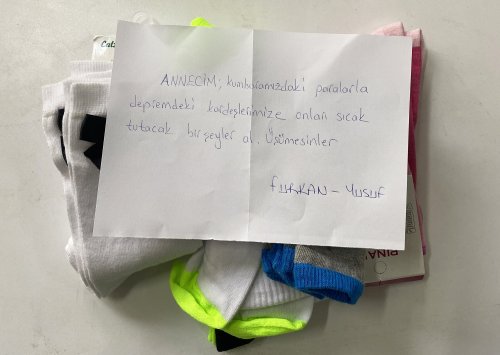 Calz
ANNECİM; kumbaramızdaki paralarla
depremdeki kardeşlerimize onları sıcak
tutacak bir şeyler al. Üşümesinler
FURKAN - YUSUF